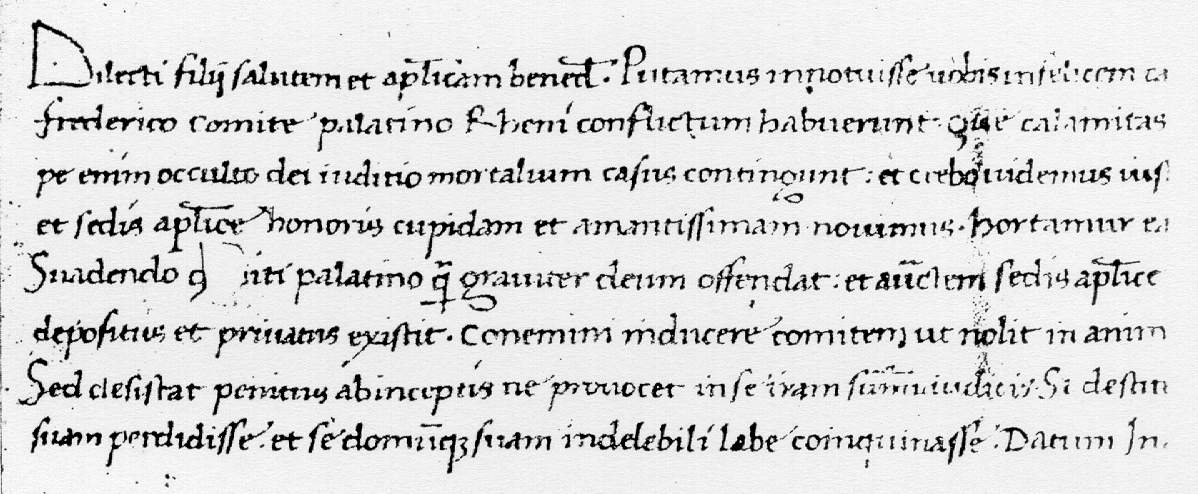 Dilecti filij salutem et aplicam bened. Putamus innotuisse vobis infelicem ca
frederico comite palatino Rheni conflictum habuerunt. Que calamitas
pe enim occulto dei iuditio mortalium casus contingunt: et crebo videmus ius
et sedis aplice honoris cupidam et amantissimam novimus. hortamur ea
Suadendo q iti palatino q graviter deum offendat: et auctem sedis aplice
depositus et privatus existit. Conemini inducere comitem ut nolit in anim
Sed desistat penitus ab inceptis ne provocet in se iram summi iudicis. Si destiti
suam perdidisse. et se domumq suam indelebili labe coinquinasse. Datum In